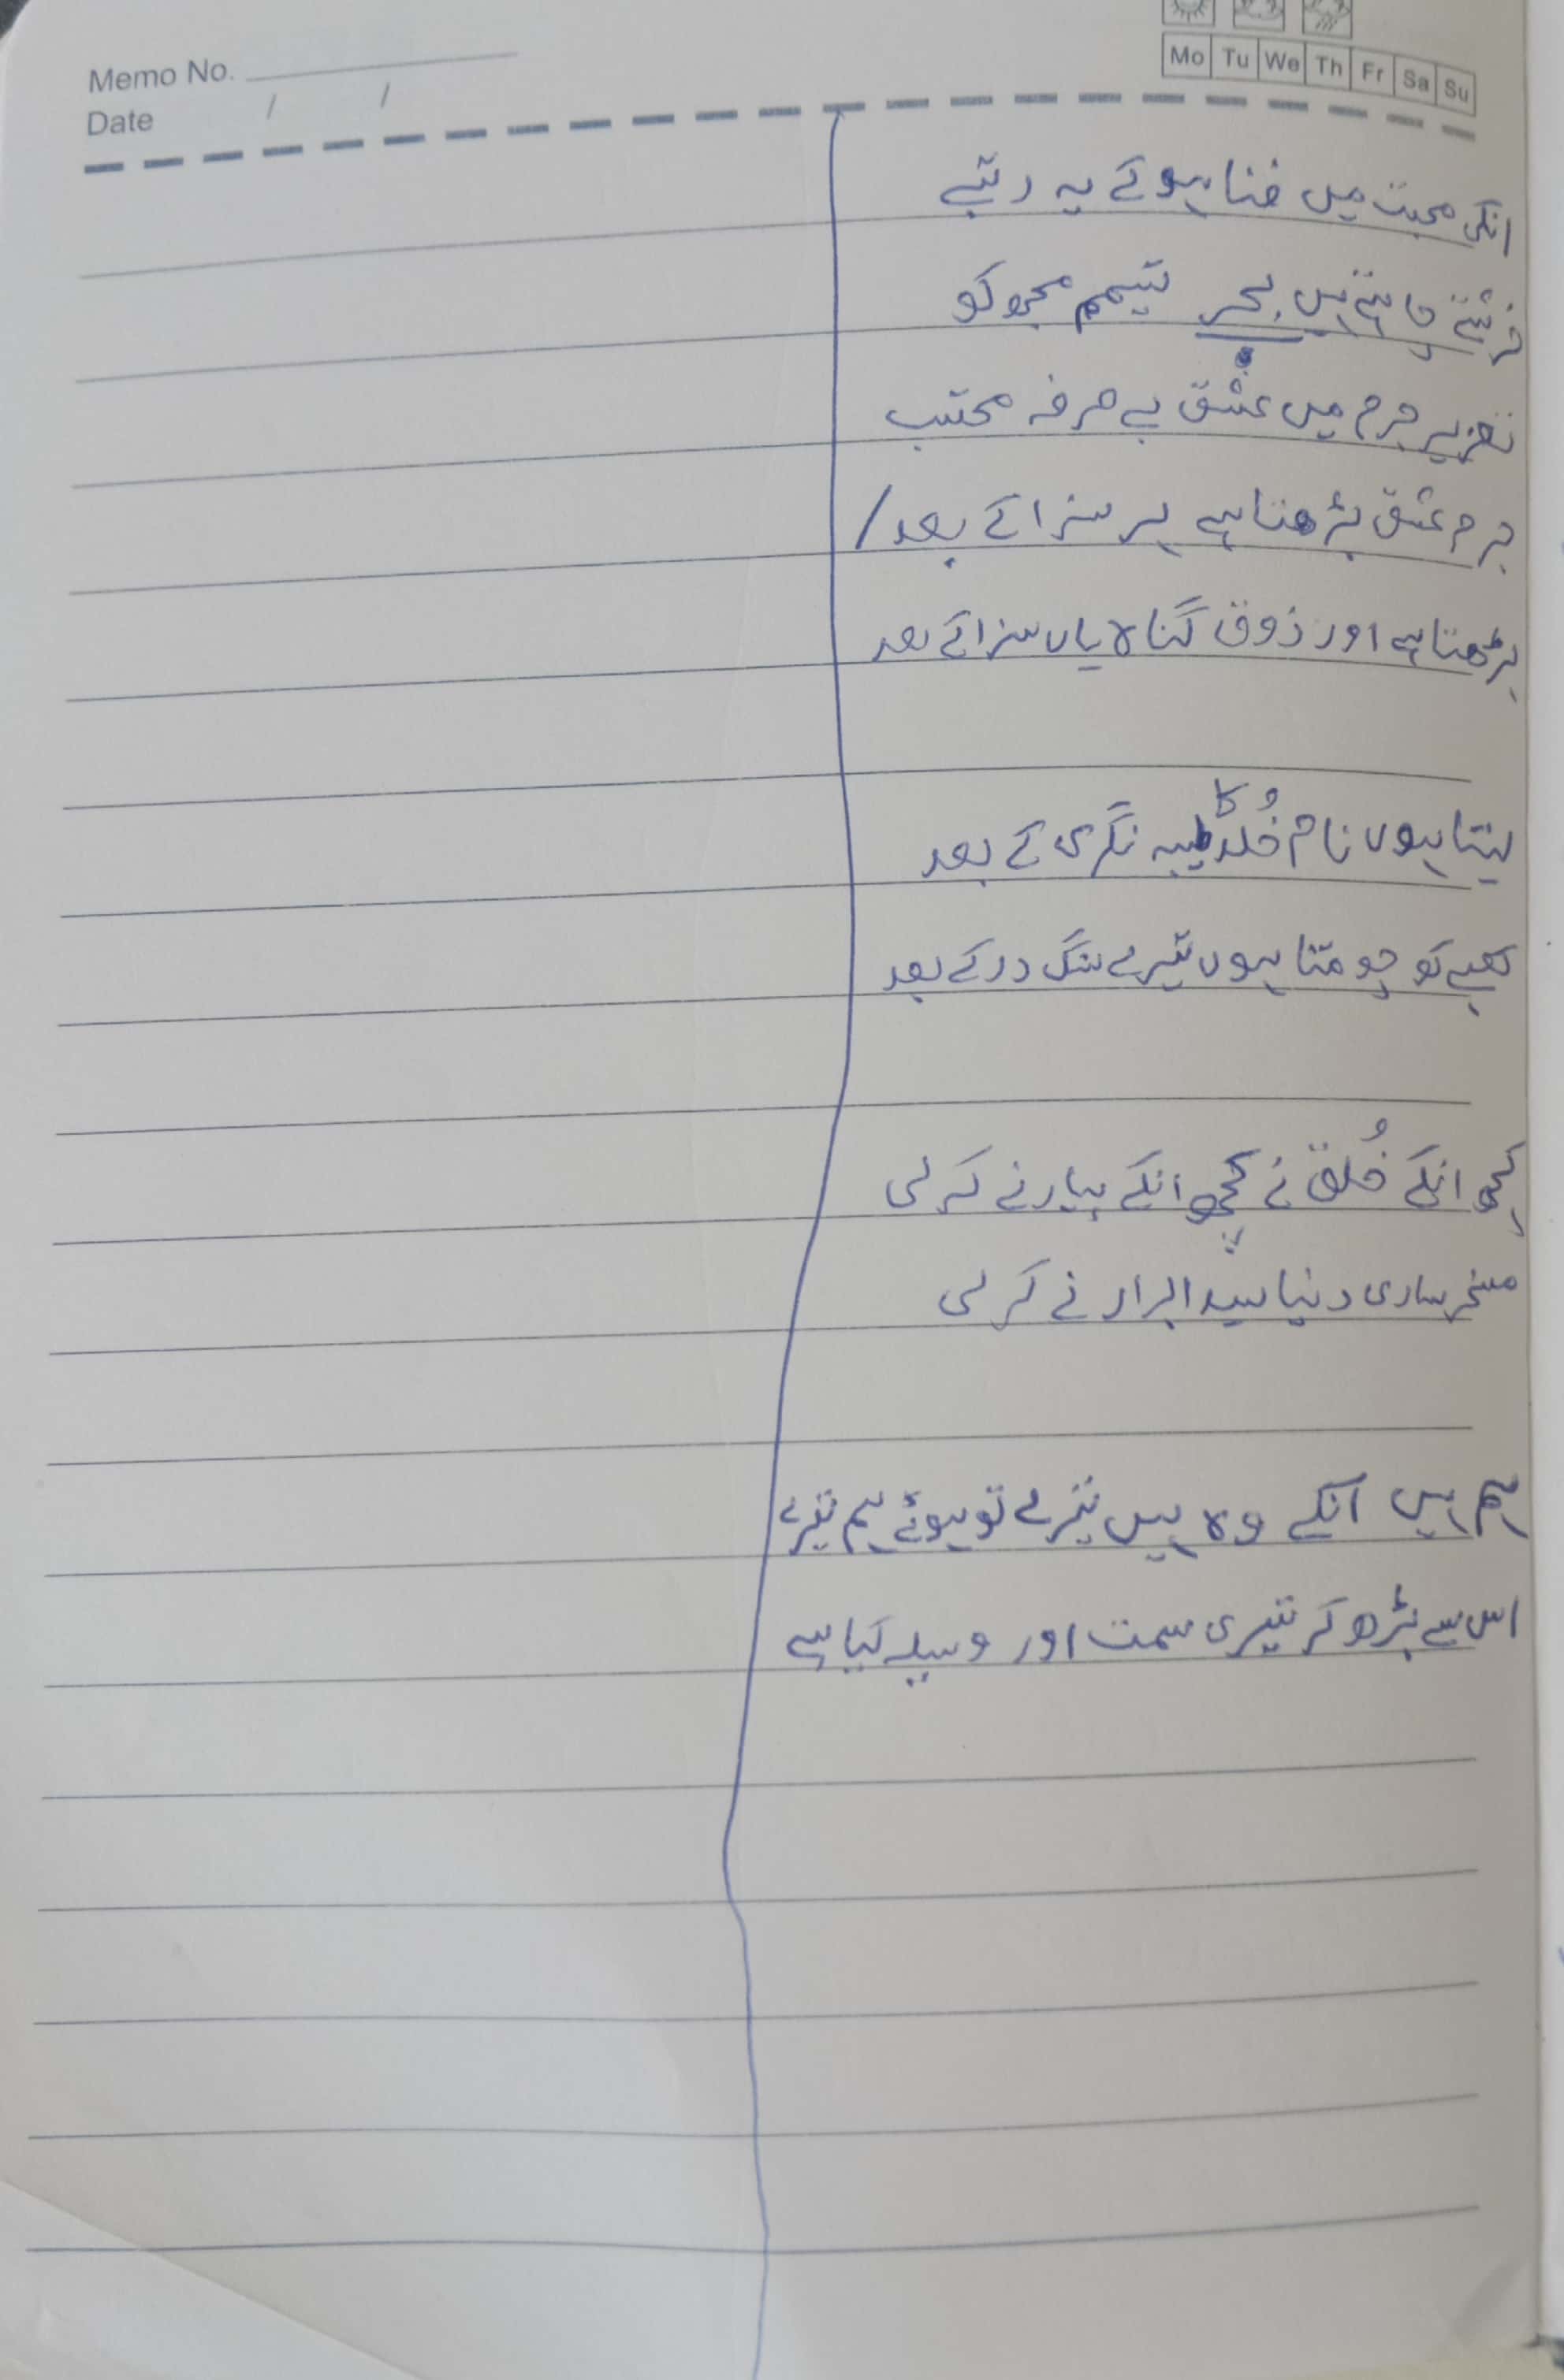 Memo No.
Date / /
Mo Tu We Th Fr Sa Su
انکی محبت میں فنا ہونے کے یہ رتبے
فرشتے چاہتے ہیں بحر تیمم مجھ کو
تعزیر جرم میں عشق بے صرفہ محتسب
جرم عشق بڑھتا ہے پر سزا کے بعد /
بڑھتا ہے اور ذوق گناہ یاں سزا کے بعد
لیتا ہوں نام خُلد کا طیبہ نگری کے بعد
کعبے کو چومتا ہوں تیرے سنگ در کے بعد
کچھ انکے خُلق نے کچھ انکے پیار نے کر لی
مسخر ساری دنیا سید ابرار نے کر لی
ہم ہیں انکے وہ ہیں تیرے تو ہوئے ہم تیرے
اس سے بڑھ کر تیری سمت اور وسیلہ کیا ہے